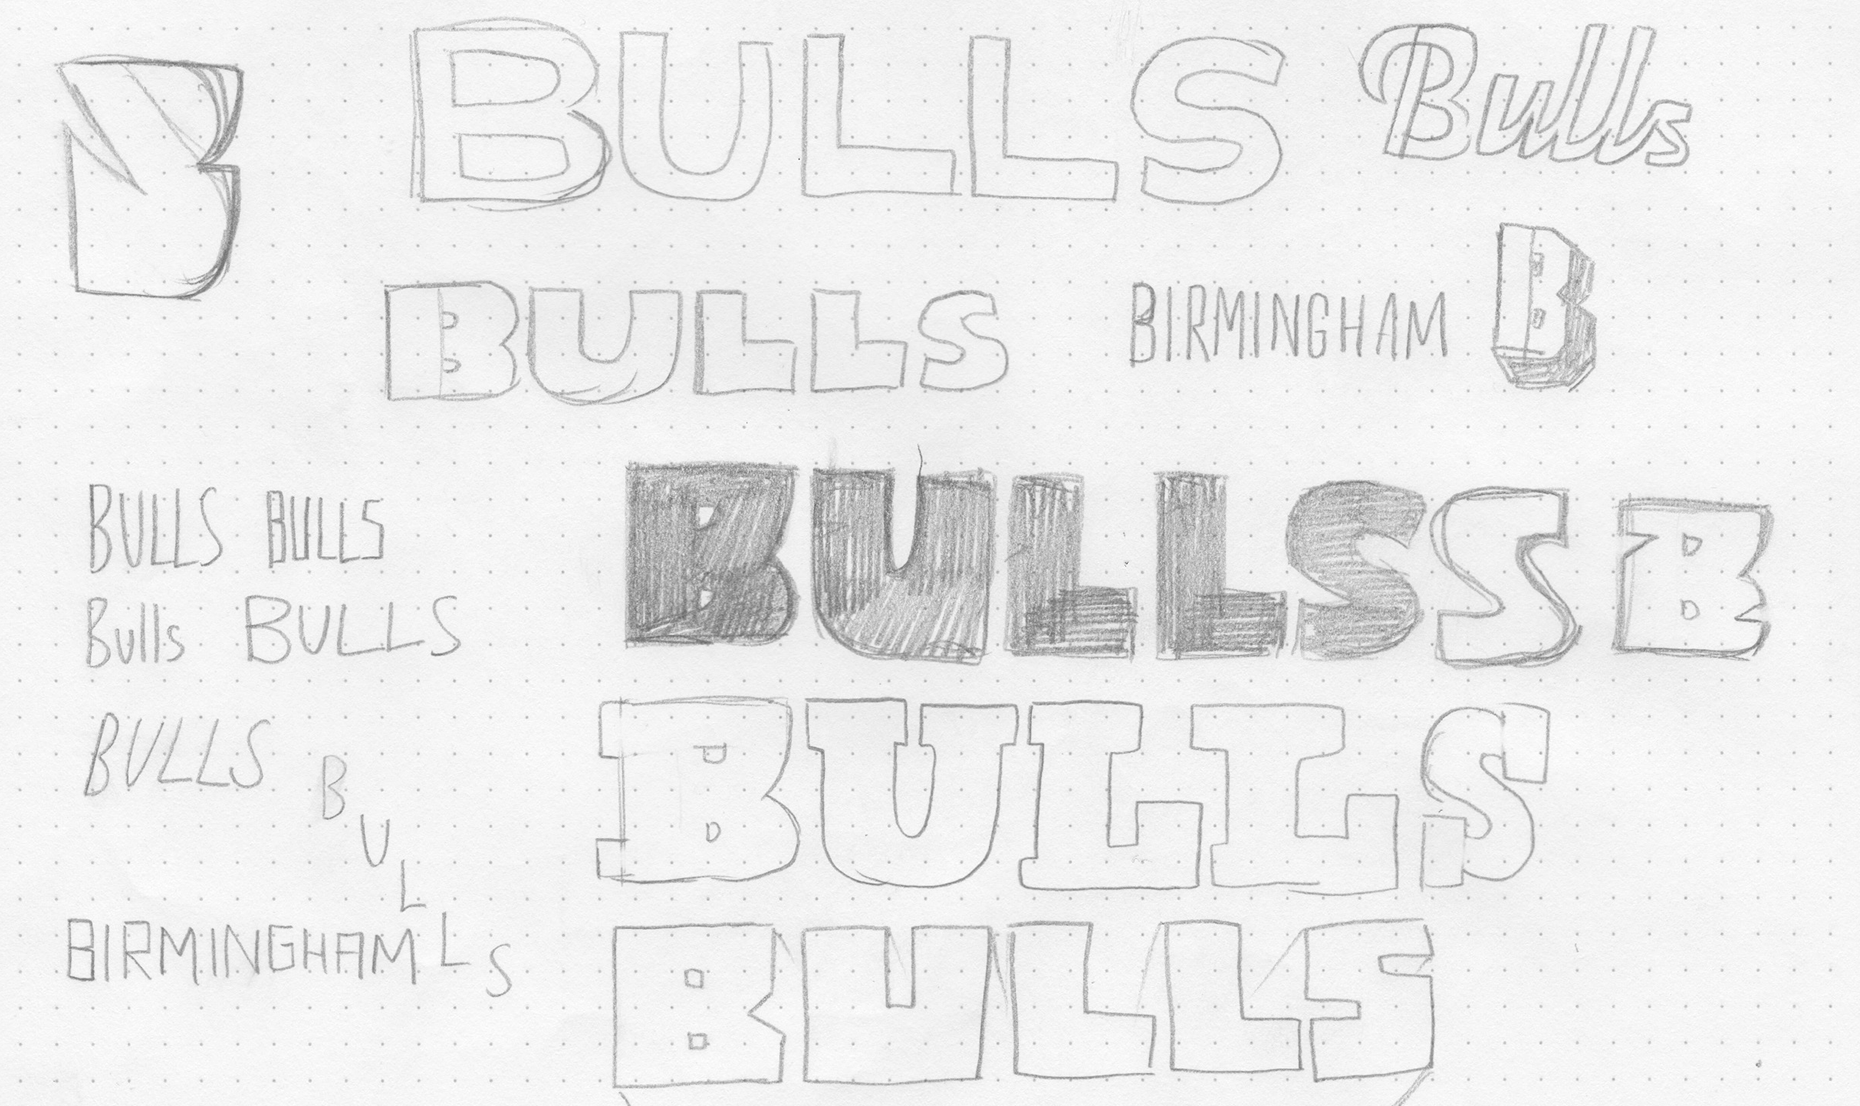 B
BULLS
Bulls
BULLS
BIRMINGHAM
B
BULLS BULLS
BULLSS
B
Bulls BULLS
BULLS
BULLS
BULLS
BIRMINGHAM
BULLS